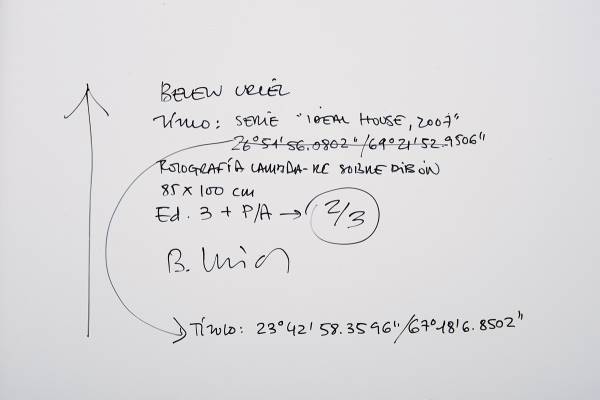 BELEN URIEL
TÍTULO: SERIE "IDEAL HOUSE, 2007"
26°51'56.0802"/69°21'52.9506"
FOTOGRAFÍA LAMBDA-RC SOBRE DIBÓN
85 x 100 cm
Ed. 3 + P/A → 2/3
B. Uriel
TÍTULO: 23°42'58.3596"/67°18'6.8502"